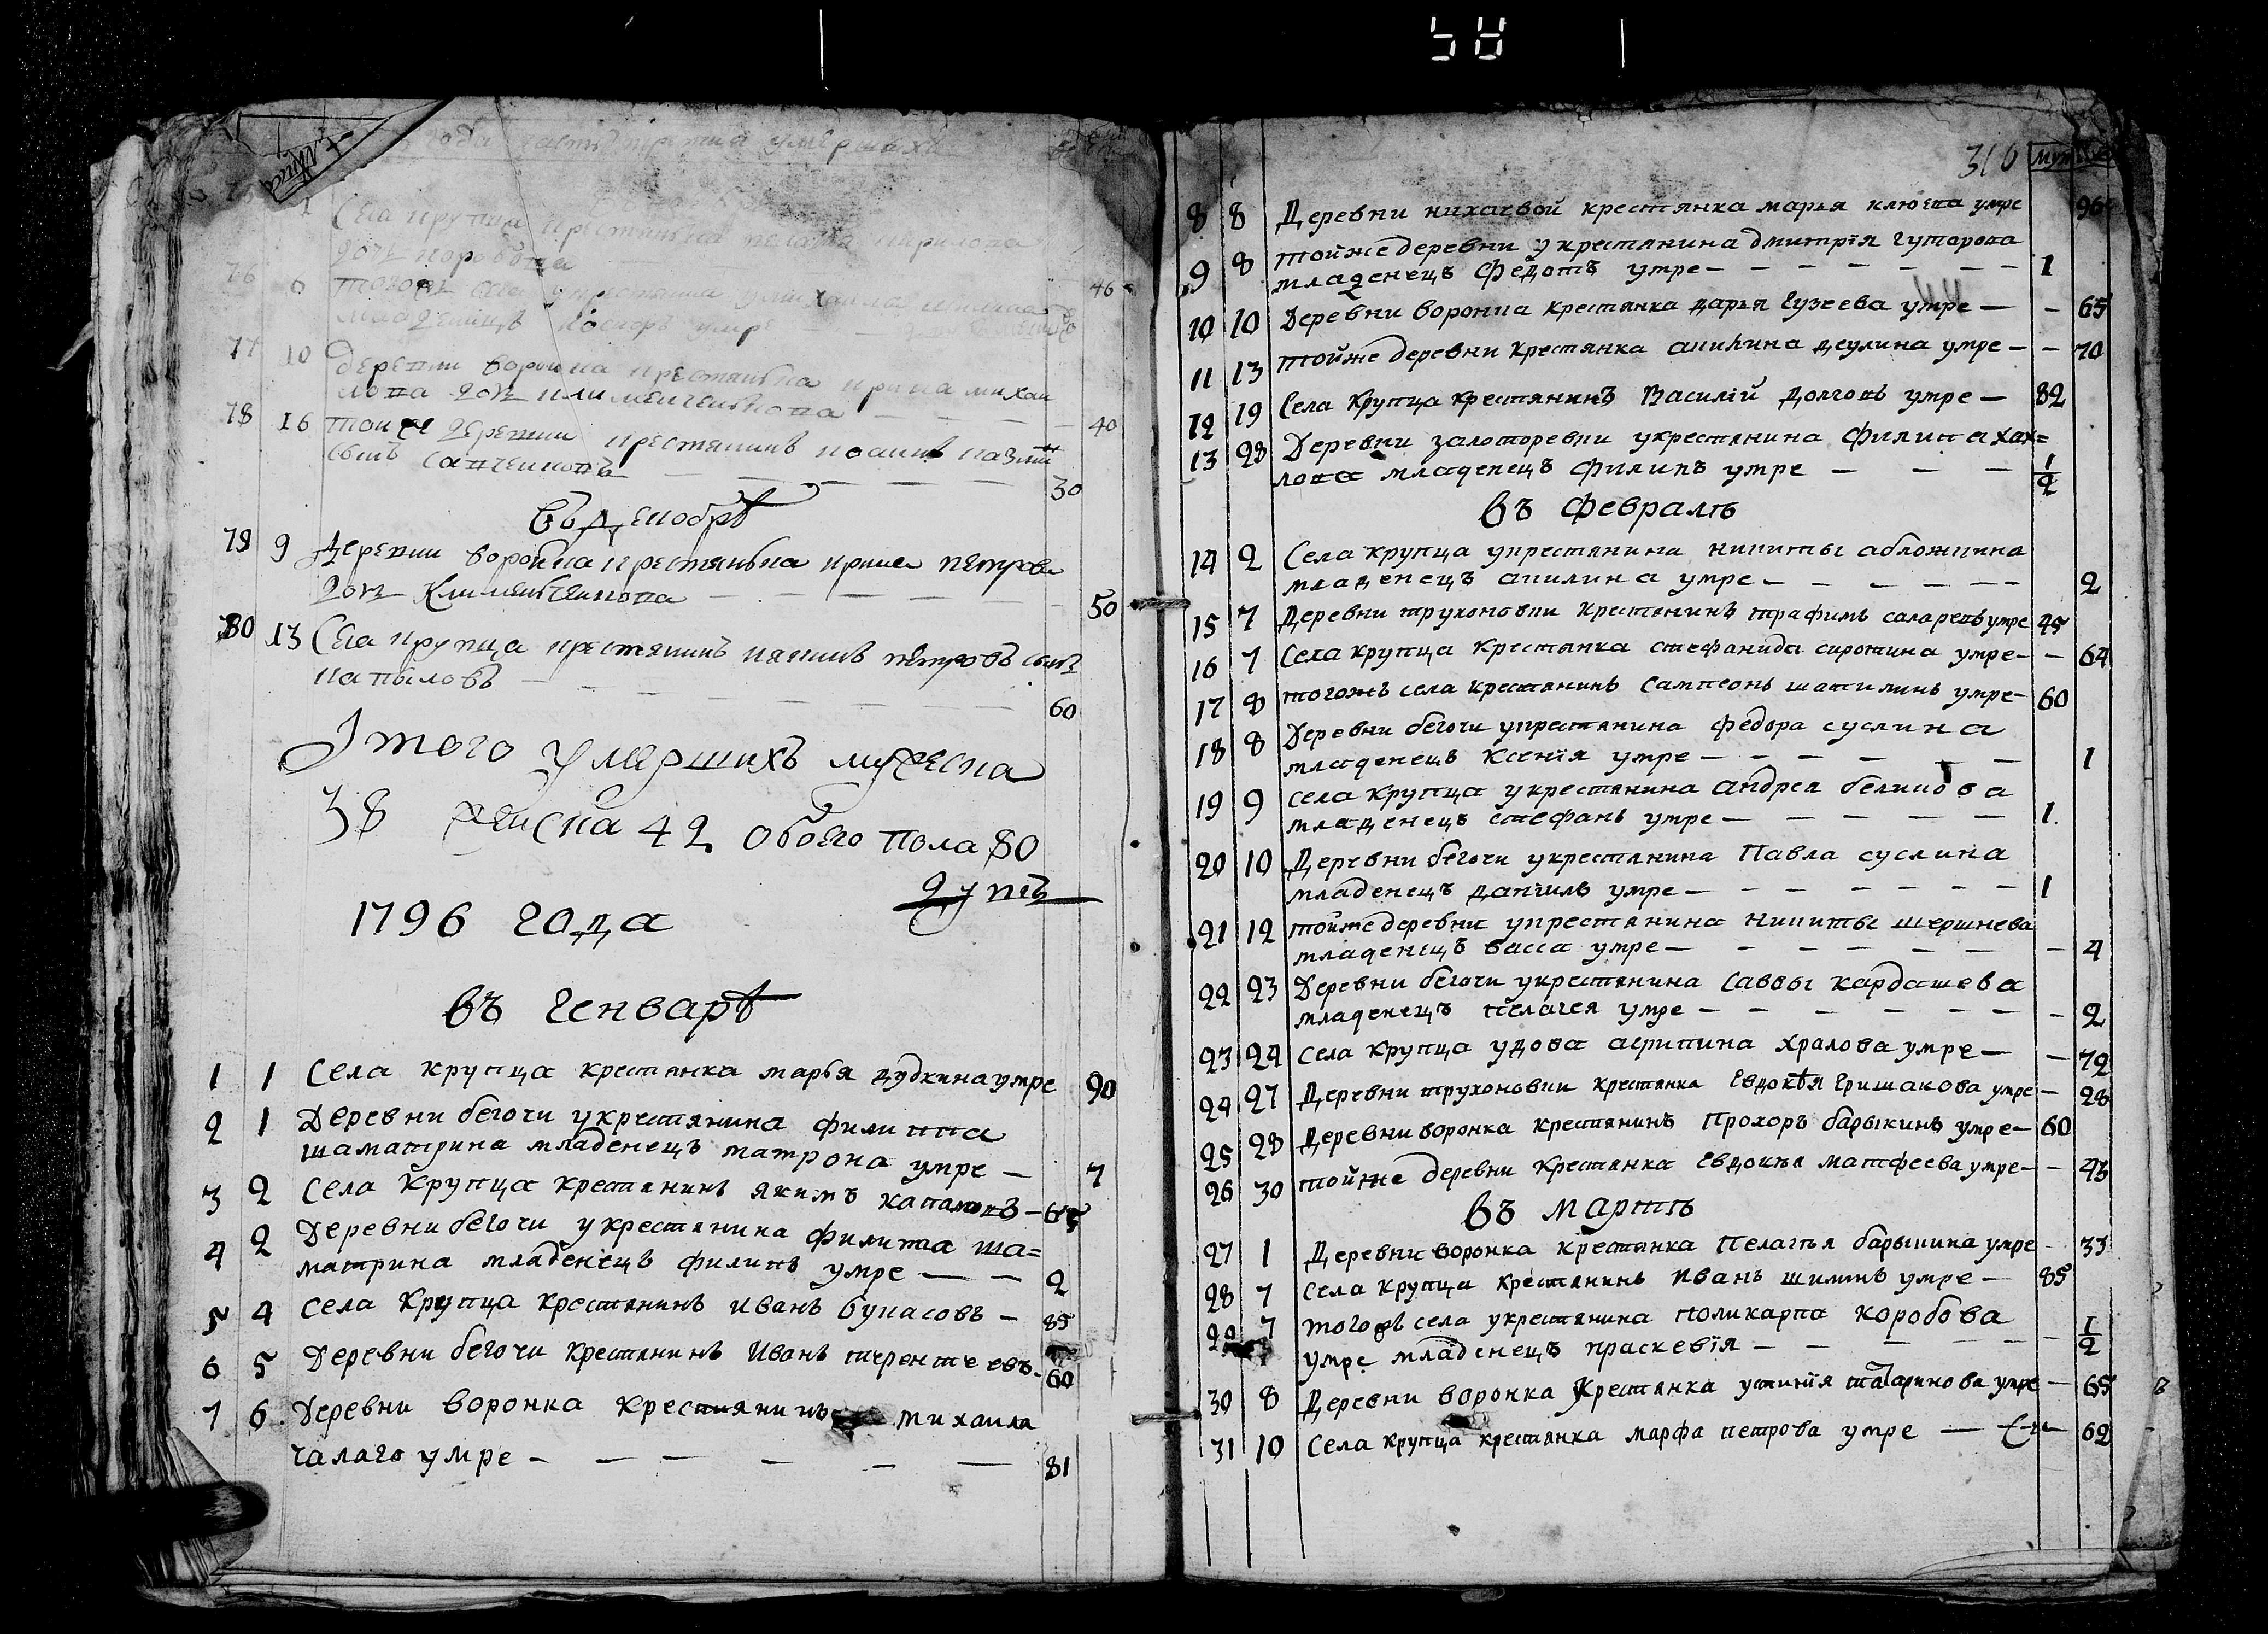 58
года часть третия умершихъ
Села крупца крестьянка пелагея кирилова
дочь коробова
76 6 тогожъ села
младенецъ иосифъ умре
46
77 10 деревни воронка крестьянка ирина михаи
лова дочь клименченкова — 40
78 16 тойже деревни крестянинъ иоаннъ
сынъ савченковъ — — — — — 30
Въ Декобрѣ
79 9 Деревни воронка крестьянка ирина петрова
дочь Клименченкова — — — — — 50
80 13 Села крупца крестянинъ петровъ сынъ
папыловъ — — — — — 60
Итого умершихъ мужеска
38 женска 42 обоего пола 80
душъ
1796 года
въ генварѣ
1 1 Села крупца крестянка марья дудкина умре 90
2 1 Деревни бегочи укрестянина филиппа
шаматрина младенецъ матрона умре — 7
3 2 Села Крупца крестянинъ якимъ — 65
4 2 Деревни бегочи укрестянина филипа ша=
матрина младенецъ филипъ умре — — 2
5 4 села Крупца крестянинъ иванъ бунасовъ — 85
6 5 Деревни бегочи крестянинъ Иванъ тиреитеевъ - 60
7 6 Деревни воронка крестянинъ михаила
чалаго умре - — — — — — 81
310 муж
8 8 Деревни нихаевой крестянка марья клюева умре 96
9 8 тойже деревни укрестянина дмитрїя гуторова
младенецъ федотъ умре — — — — — — 1
10 10 Деревни воронка крестянка дарья гузеева умре — - 65
11 13 тойже деревни крестянка акилина деулина умре — - 70
12 19 Села Крупца крестянинъ Василїй Долговъ умре — 82
13 28 Деревни залоторевки укрестянина филипа хах=
лова младенецъ филипъ умре — — — 1/2
въ февралѣ
14 2 Села крупца укрестянина никиты абложкина
младенецъ акилина умре — — — — — 2
15 7 Деревни трухоновки крестянинъ трафимъ саларевъ умре 45
16 7 Села крупца крестянка стефанида сиротина умре - - 64
17 8 тогожъ села крестянинъ сампсонъ шатилинъ умре - 60
18 8 Деревни бегочи укрестянина федора суслина
младенецъ ксенїя умре — — — — — 1
19 9 села крупца укрестянина андрея беликова
младенецъ стефанъ умре — — — — — 1
20 10 Деревни бегочи укрестянина Павла суслина
младенецъ данїилъ умре — — — — — — 1
21 12 тойже деревни укрестянина никиты шершнева
младенецъ васса умре — — — — — — 4
22 23 Деревни бегочи укрестянина саввы кардашева
младенецъ пелагея умре — — — — — — 2
23 24 села крупца удова агрипина храпова умре — — 72
24 27 Деревни трухоновки крестянка евдокѣя гришакова умре — 28
25 28 Деревни воронка крестянинъ Прохоръ барыкинъ умре — 60
26 30 тойже деревни крестянка евдокѣя матфеева умре - - 43
въ мартѣ
27 1 Деревни воронка крестянка Пелагѣя барыкина умре - 33
28 7 села крупца крестянинъ иванъ шилинъ умре — 85
29 7 тогожъ села укрестянина поликарпа коробова
умре младенецъ праскевїя — — — — — 1/2
30 8 Деревни воронка крестянка устинїя татаринова умре — 65
31 10 села крупца крестянка марфа петрова умре — 62